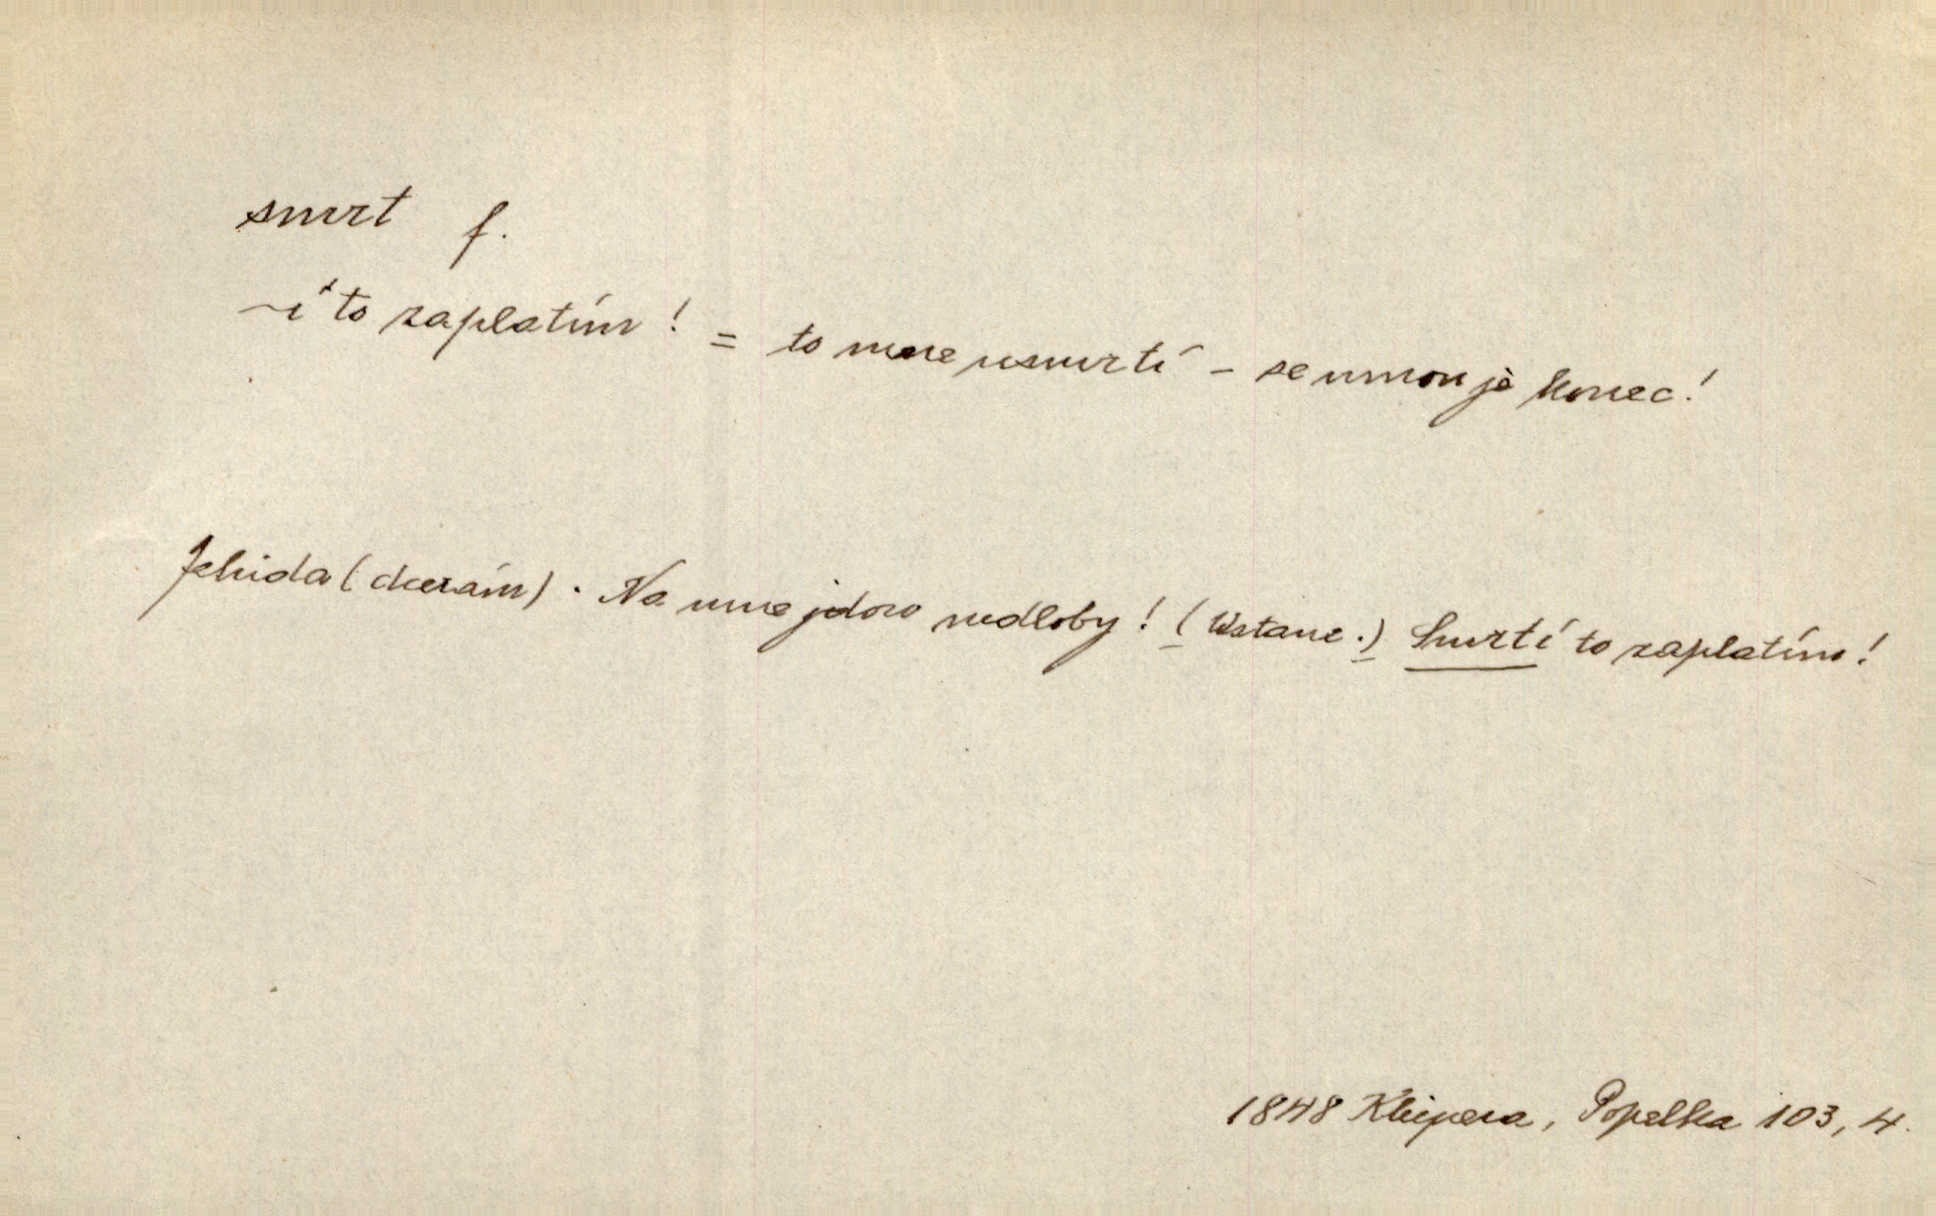 smrt f.
~í to zaplatím! = to mne usmrtí – se mnou jè konec!
Jehida (dcerám). Na mne jdou mdloby! (Wstane.) Smrtí to zaplatím!
1848 Klicpera, Popelka 103, 4.